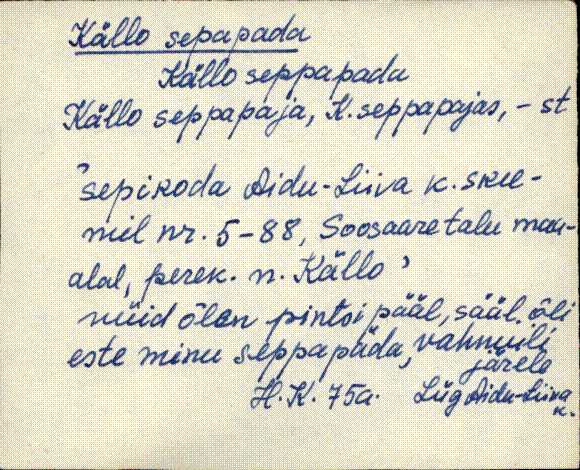 Källo sepapada
Källo seppapada
Källo seppapaja, K. seppapajas, - st
'sepikoda Aidu-Liiva k. skee-
mil nr. 5-88, Soosaare talu maa-
alal, perek. n. Källo'
nüid õlen pintsi pääl, sääl. õli
este minu seppapäda, vahnuili
järele
H. K. 75a. Lüg Aidu-Liiva
k.